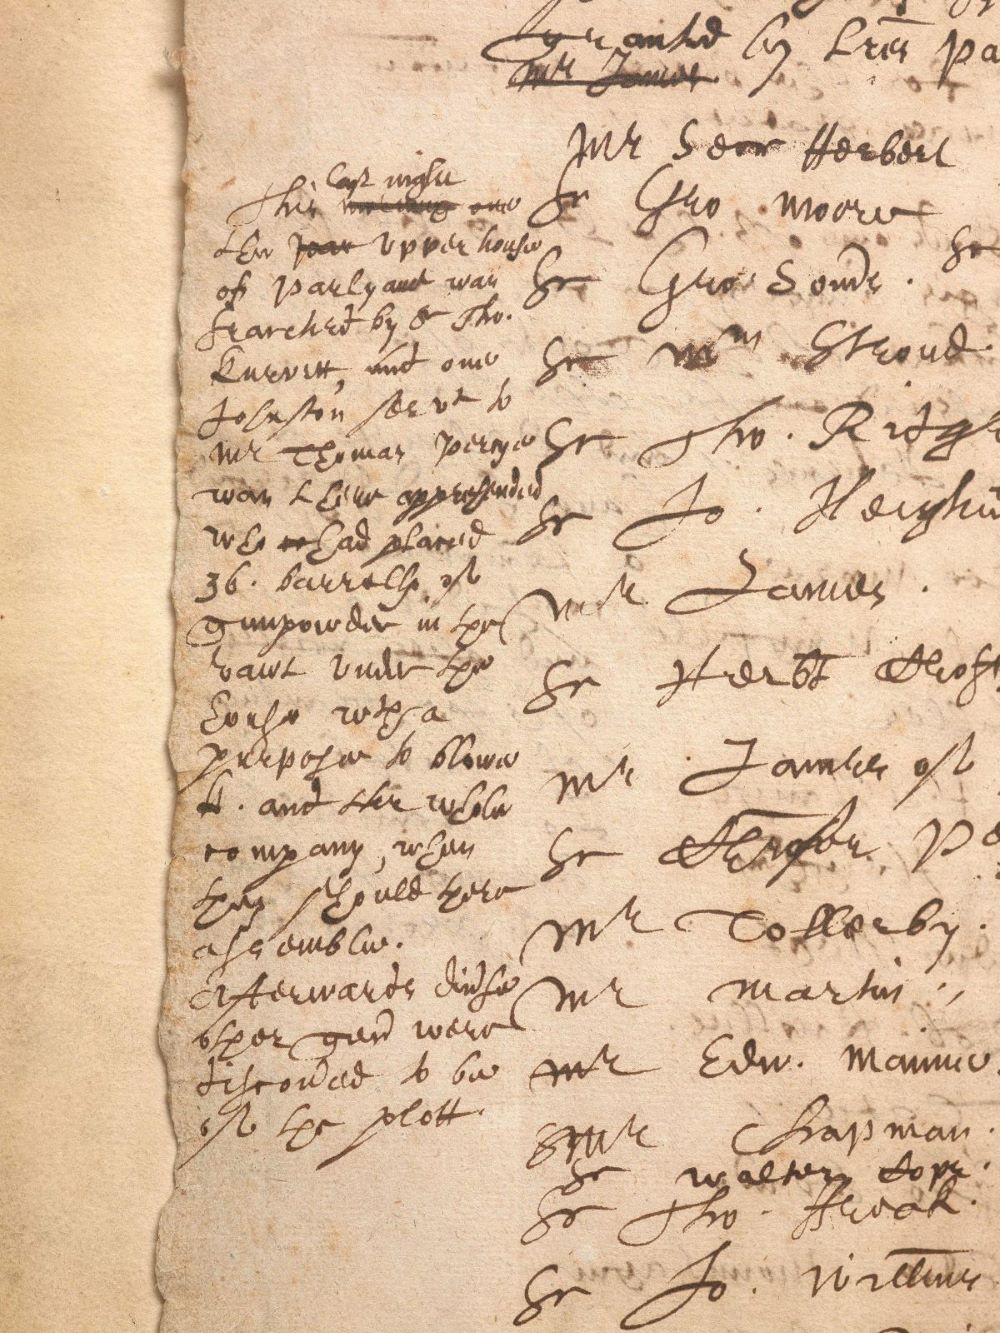 granted by Lres Pa
Mr James
Mr Serr Herbert
Sr Geo. Moore
Sr Geo. Somrs.
Sr
Sr Wm Stroud.
Sr Tho. Ridg
Sr Jo. Heigha
Mr James.
Sr Herbt Croft
Mr James of
Sr Chrofer P
Mr Tollerby.
Mr Martin.
Mr Edw. Mainne
Mr Chapman.
Sr Walter Cope.
Sr Tho. Freak.
Sr Jo.
last night
This morning one
the Upper house
of Parlyamt was
searched by Sr Tho.
Knevett, and one
Johnston servt to
Mr Thomas Percye
was there apprehended
who had placed
36. barrells of
gunpowder in the
vawt under the
house wth a
purpose to blowe
it. and the whole
company, when
they should here
assemble.
Afterwards divse
other gen were
discovred to be
of the plott.